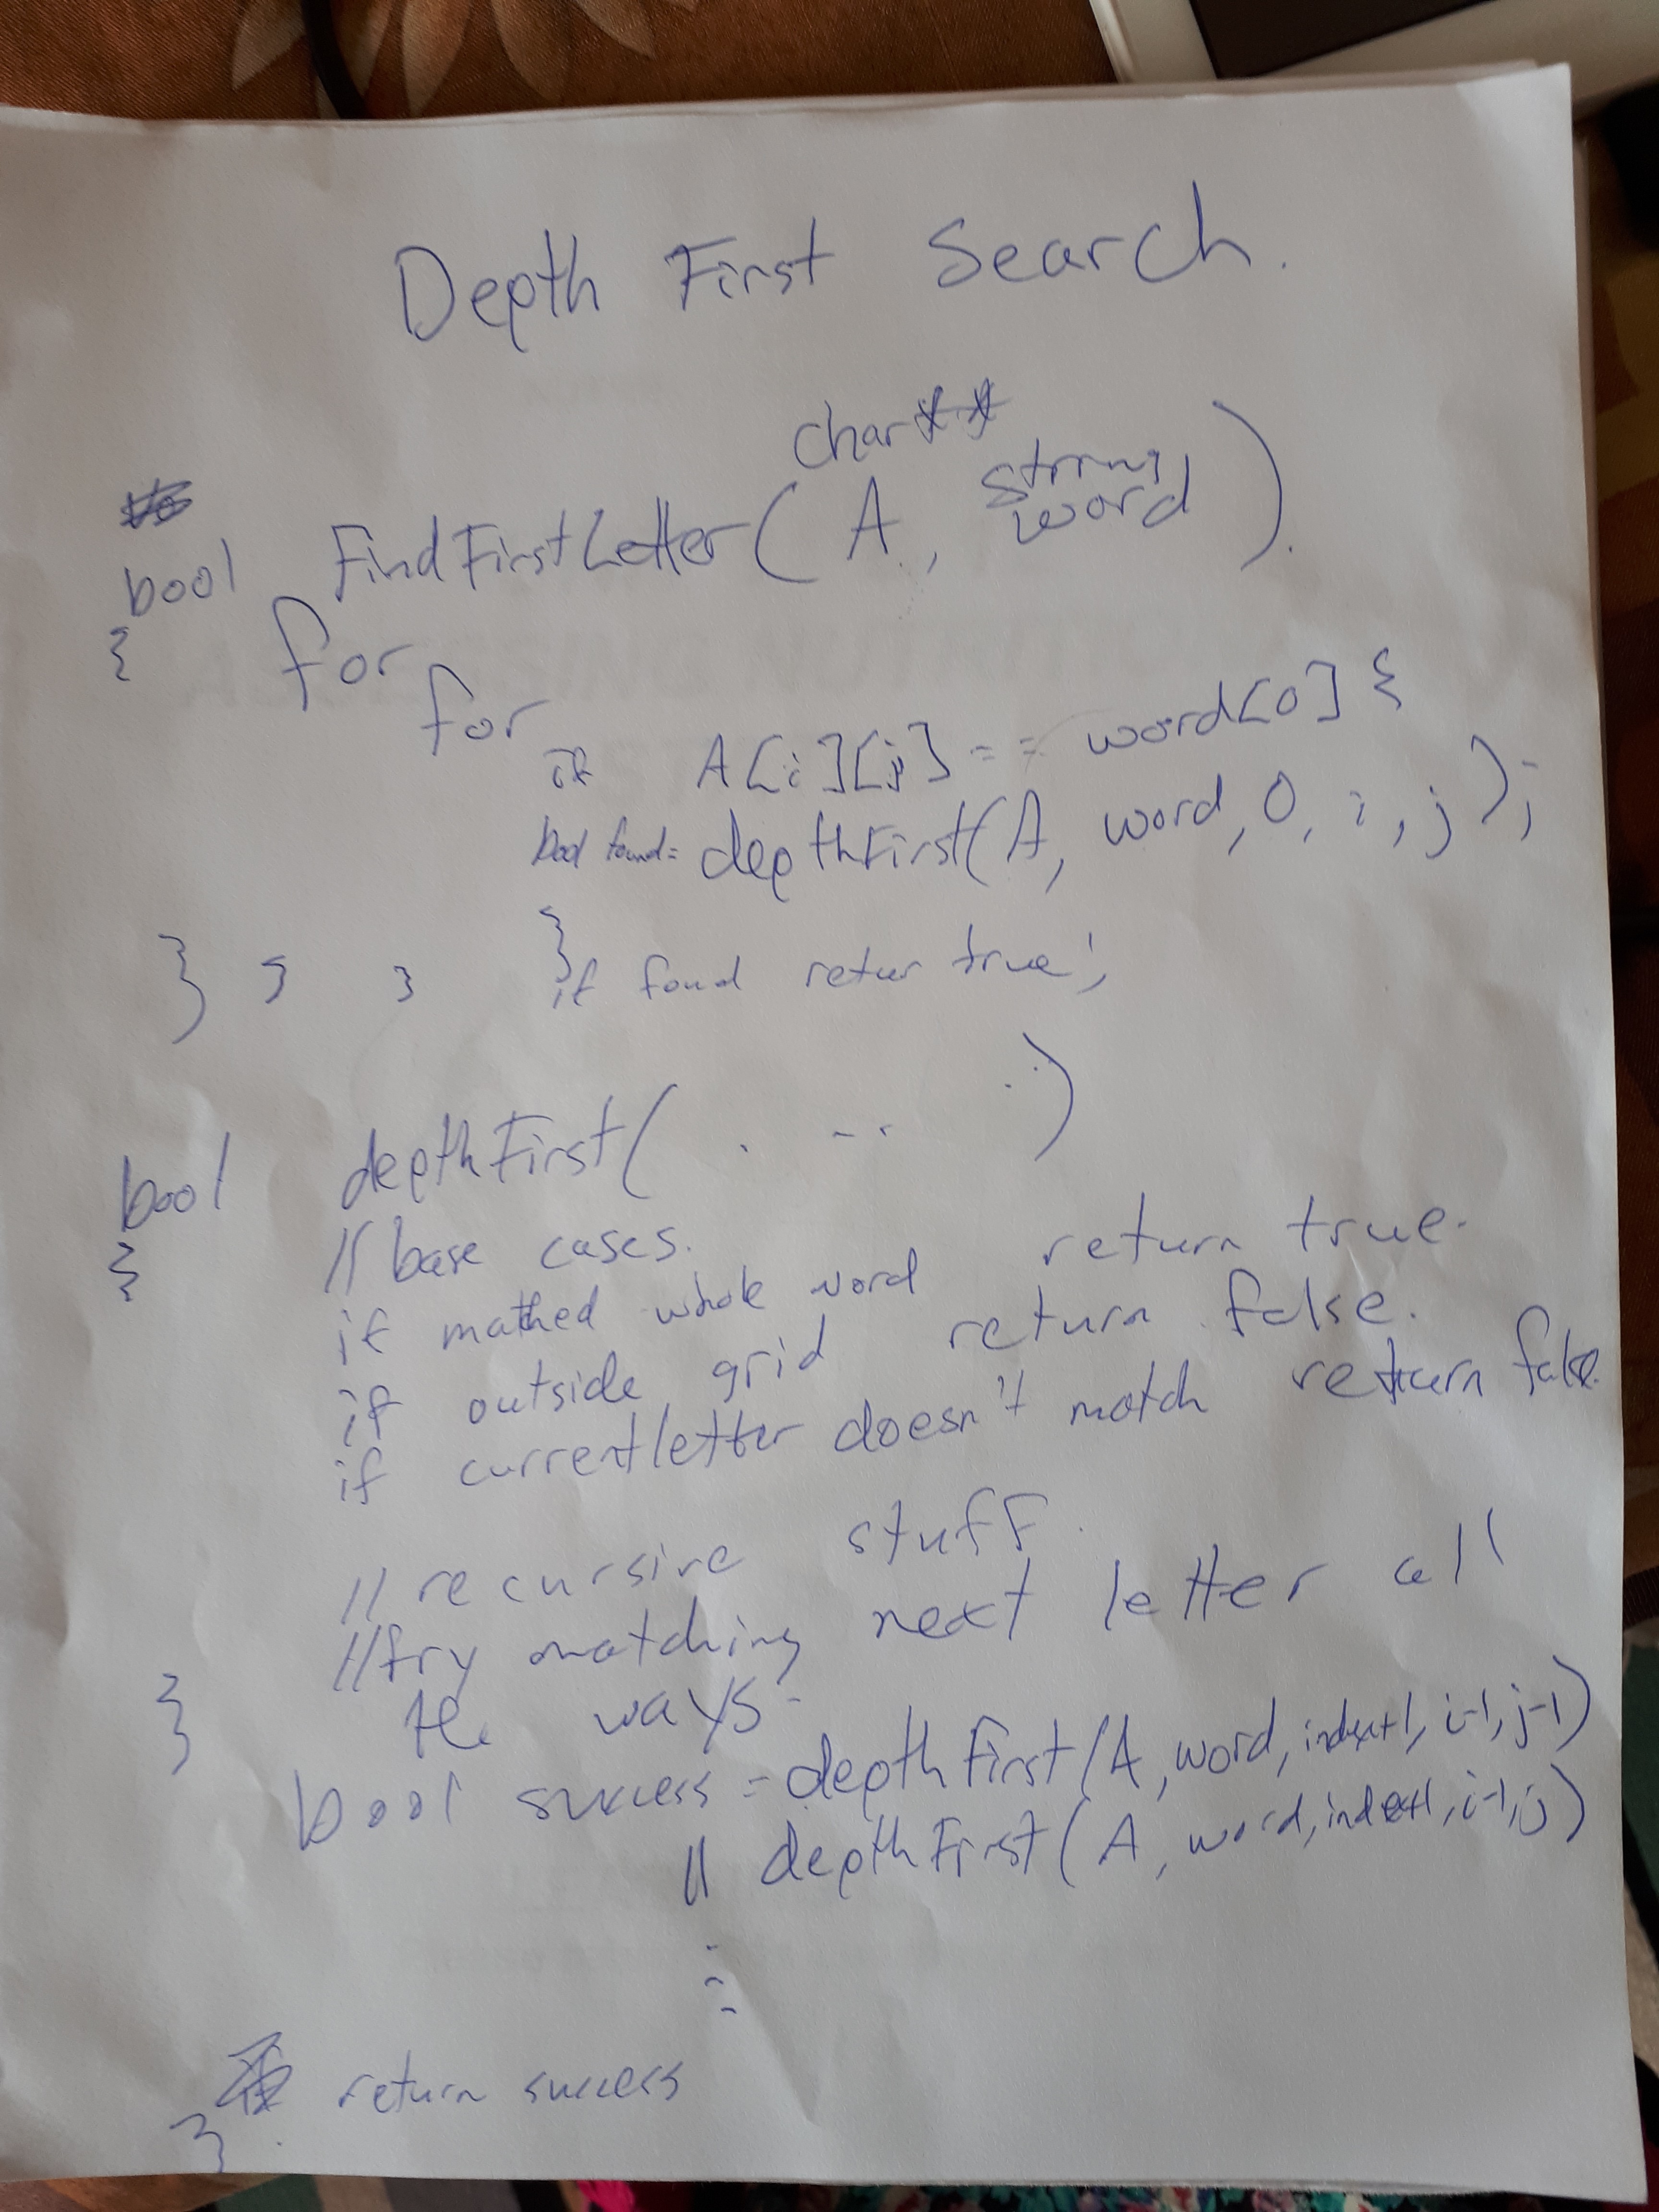 Depth First Search.
char**
string
bool FindFirstLetter( A, word ).
{ for
for
if A[i][j] == word[0] {
bool found= depthFirst(A, word, 0, i, j );
}
} } } if found retur true;
bool depthFirst( . -- . . )
{ // base cases.
if mathed whole word return true.
if outside grid return false.
if currentletter doesn't match return false.
// recursive stuff.
//try matching next letter all
} the ways.
bool success = depthFirst(A, word, index+1, i-1, j-1)
|| depthFirst(A, word, index+1, i-1, j)
return success
}